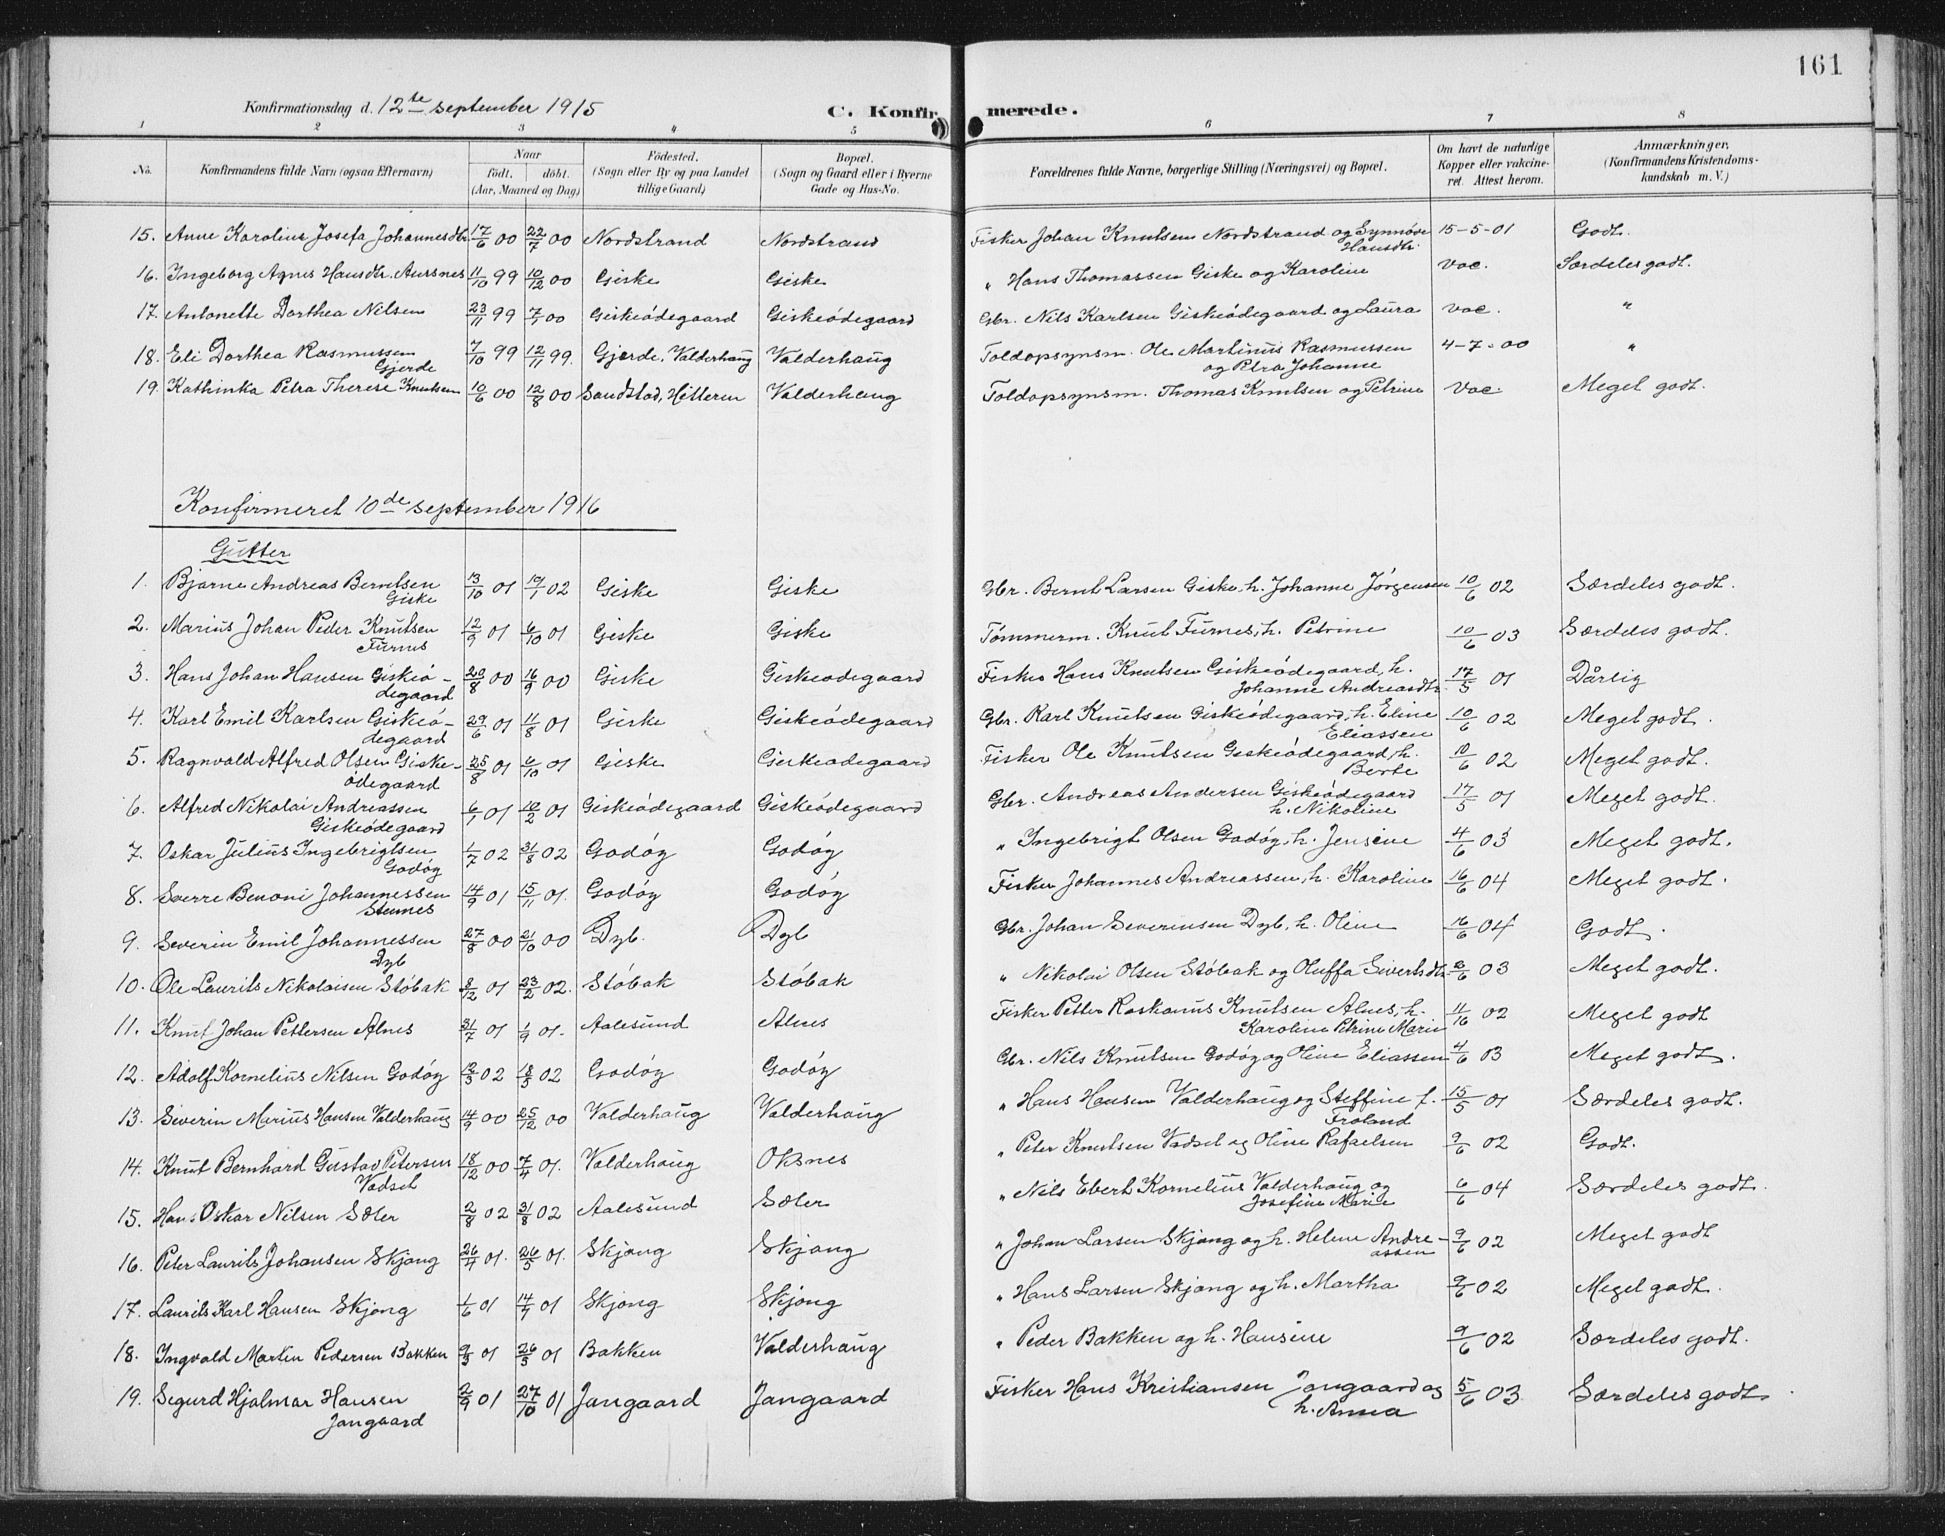 161
Konfirmationsdag d. 12te september 1915
C. Konfirmerede.
1 2 3 4 5 6 7 8
No. Konfirmandens fulde Navn (ogsaa Efternavn) Naar födt. döbt. (Aar, Maaned og Dag) Födested. (Sogn eller By og paa Landet tillige Gaard) Bopæl. (Sogn og Gaard eller i Byerne Gade og Hus-No. Forældrenes fulde Navne, borgerlige Stilling (Næringsvei) og Bopæl. Om havt de naturlige Kopper eller vakcineret. Attest herom. Anmærkninger, (Konfirmandens Kristendomskundskab m. V.)
15. Anne Karoline Josefa Johannesdtr 17/6 00 22/7 00 Nordstrand Nordstrand Fisker Johan Knutsen Nordstrand og Synnøve Hansdtr. 15-5-01 Godt.
16. Ingeborg Agnes Hansdtr. Aursnes 11/10 99 10/12 00 Giske Giske " Hans Thomassen Giske og Karoline vac. Særdeles godt.
17. Antonette Dorthea Nilsen 23/11 99 7/1 00 Giskeødegaard Giskeødegaard Gbr. Nils Karlsen Giskeødegaard og Laura vac. "
18. Eli Dorthea Rasmussen Gjerde 7/10 99 12/11 99. Gjerde, Valderhaug Valderhaug Toldopsynsm. Ole Martinus Rasmussen og Petra Johanne 4-7-00 "
19. Kathinka Petra Therese Knutsen 10/6 00 12/8 00 Sandstad, Hitteren Valderhaug Toldopsynsm. Thomas Knutsen og Petrine Vac. Meget godt.
Konfirmeret 10de september 1916
Gutter
1. Bjarne Andreas Berntsen Giske 13/10 01 19/1 02 Giske Giske Gbr. Bernt Larsen Giske, h. Johanne Jørgensen 10/6 02 Særdeles godt.
2. Marius Johan Peder Knutsen Furnes 12/9 01 6/10 01 Giske Giske Tømmerm. Knut Furnes, h. Petrine 10/6 03 Særdeles godt.
3. Hans Johan Hansen Giskeødegaard 20/8 00 16/9 00 Giske Giskeødegaard Fisker Hans Knutsen Giskeødegaard, h. Johanne Andreasdtr. 17/5 01 Dårlig
4. Karl Emil Karlsen Giskeødegaard 29/6 01 11/8 01 Giske Giskeødegaard Gbr. Karl Knutsen Giskeødegaard, h. Eline Eliassen 10/6 02 Meget godt.
5. Ragnvald Alfred Olsen Giskeødegaard 25/8 01 6/10 01 Giske Giskeødegaard Fisker Ole Knutsen Giskeødegaard, h. Berte 10/6 02 Meget godt.
6. Alfred Nikolai Andreassen Giskeødegaard 6/1 01 10/2 01 Giskeødegaard Giskeødegaard Gbr. Andreas Andersen Giskeødegaard h. Nikoline 17/5 01 Meget godt.
7. Oskar Julius Ingebrigtsen Godøy 1/7 02 31/8 02 Godøy Godøy " Ingebrigt Olsen Godøy, h. Jensine 4/6 03 Meget godt.
8. Sverre Benoni Johannessen Steines 14/9 01 15/11 01. Godøy Godøy Fisker Johannes Andreassen, h. Karoline 16/6 04 Meget godt.
9. Severin Emil Johannessen Dyb 27/8 00 21/10 00 Dyb. Dyb Gbr. Johan Severinsen Dyb, h. Oline 16/6 04 Godt.
10. Ole Laurits Nikolaisen Støbak 8/12 01 23/2 02. Støbak Støbak " Nikolai Olsen Støbak og Oluffa Sivertsdtr 8/6 03 Meget godt.
11. Knut Johan Pettersen Alnes 31/7 01 1/9 01. Aalesund Alnes Fisker Petter Knutsen Alnes, h. Karoline Petrine Marie 11/16 02 Meget godt
12. Adolf Kornelius Nilsen Godøy 12/3 02 18/5 02 Godøy Godøy Gbr. Nils Knutsen Godøy og Oline Eliassen 4/6 03 Meget godt.
13. Siverin Marius Hansen Valderhaug 14/9 00 25/12 00 Valderhaug Valderhaug " Hans Hansen Valderhaug og Steffine f. Froland 15/5 01 Særdeles godt.
14. Knut Bernhard Gustav Petersen Vadset 18/12 00 7/4 01. Valderhaug Oksnes " Peter Knutsen Vadset og Oline Rafaelsen 9/6 02 Godt.
15. Hans Oskar Nilsen Sæter 2/8 02 31/8 02 Aalesund Sæter " Nils Ebert Kornelius Valderhaug og Josefine Marie 6/6 04 Særdeles godt.
16. Peter Laurits Johansen Skjong 26/4 01. 26/5 01. Skjong Skjong " Johan Larsen Skjong og h. Helene Andreassen 9/6 02 Meget godt
17. Laurits Karl Hansen Skjong 1/6 01 14/7 01 Skjong Skjong " Hans Larsen Skjong og h. Martha 9/6 02 Meget godt.
18. Ingvald Martin Pedersen Bakken 9/3 01 26/5 01 Bakken Valderhaug " Peder Bakken og h. Hansine 9/6 02 Særdeles godt.
19. Sigurd Hjalmar Hansen Jangaard 2/9 01 27/10 01 Jangaard Jangaard Fisker Hans Kristiansen Jangaard og h. Anna 5/6 03. Særdeles godt.